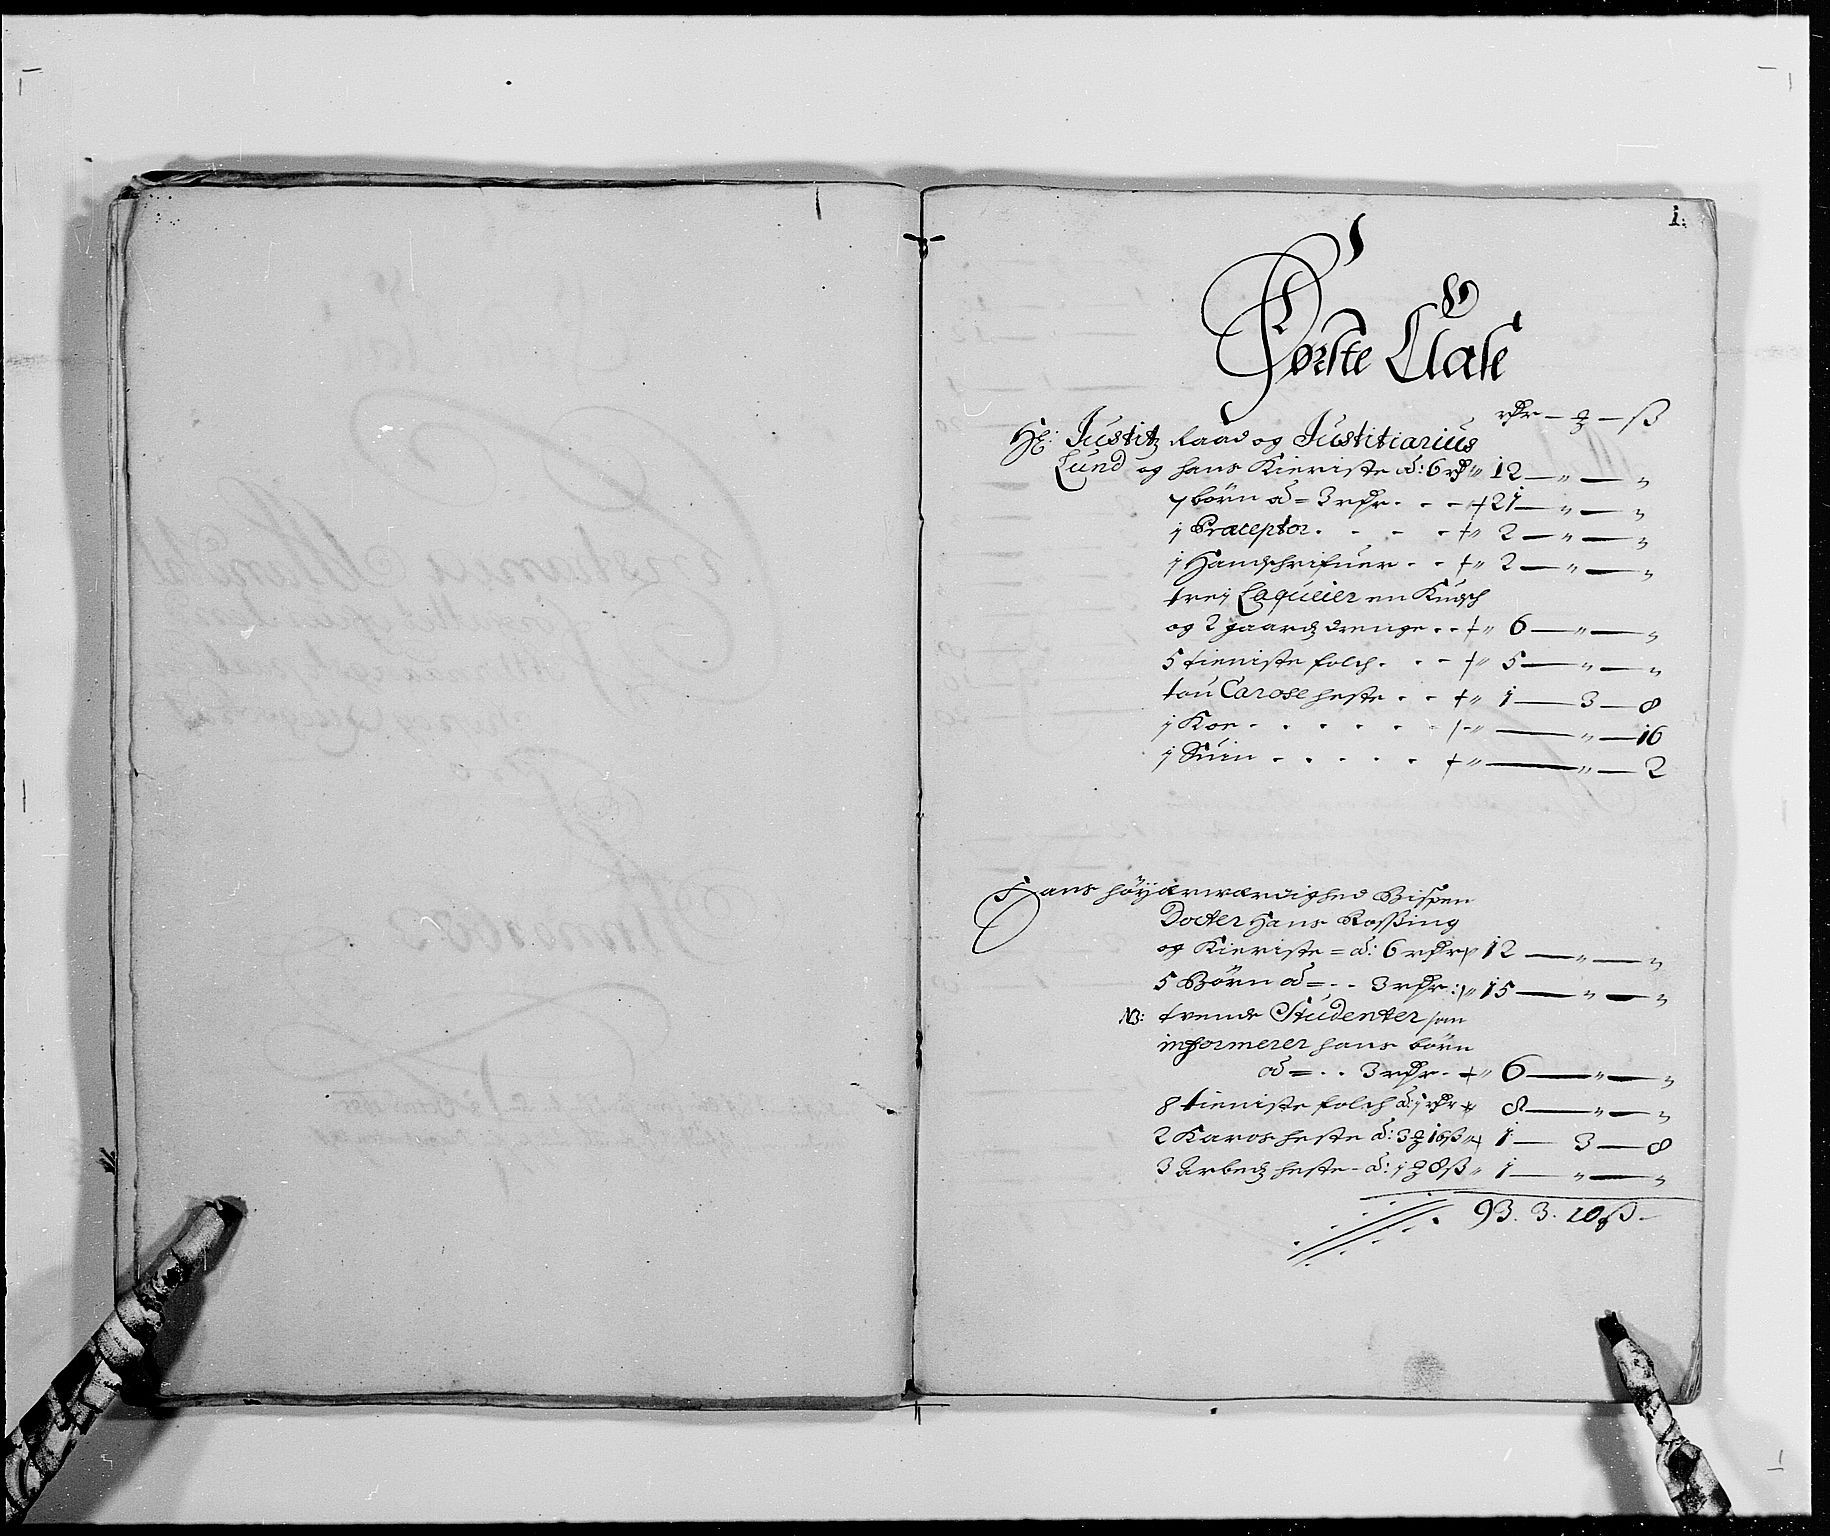 1.
Første Clase
rdr — ℥ — ß
Hr: Justitz Raad og Justitiarius
Lund og hans Kieriste â: 6 rd „ 12 — „ — „
7 börn â = 3 rdr. . . + 21 — „ — „
j Præceptor. . . . + „ 2 — „ — „
j Handschrifuer . . + „ 2 — „ — „
trej Laqueier en Kudsch
og 2 gaardz drenge . . + „ 6 — „ — „
5 tieniste folch. . . + „ 5 — „ — „
tou Carose heste . . + „ 1 — 3 — 8
j Koe . . . . . . + „ — „ — 16
j Suin . . . . . + „ — „ — 2
Hans höÿærværdighed Bispen
Docter Hans Rosßing
og Kieriste = â: 6 rdr 12 — „ — „
5 Börn â = . . 3 rdr: „ 15 — „ — „
NB: tvende Studenter som
informerer hans börn
â = . . 3 rdr. + „ 6 — „ — „
8 tieniste folch â: j rdr + 8 — „ — „
2 Karos heste â: 3 ℥ 16 ß + 1 — 3 — 8
3 Arbedz heste - â: j ℥ 8 ß „ 1 — „ — „
93. 3. 10 ß